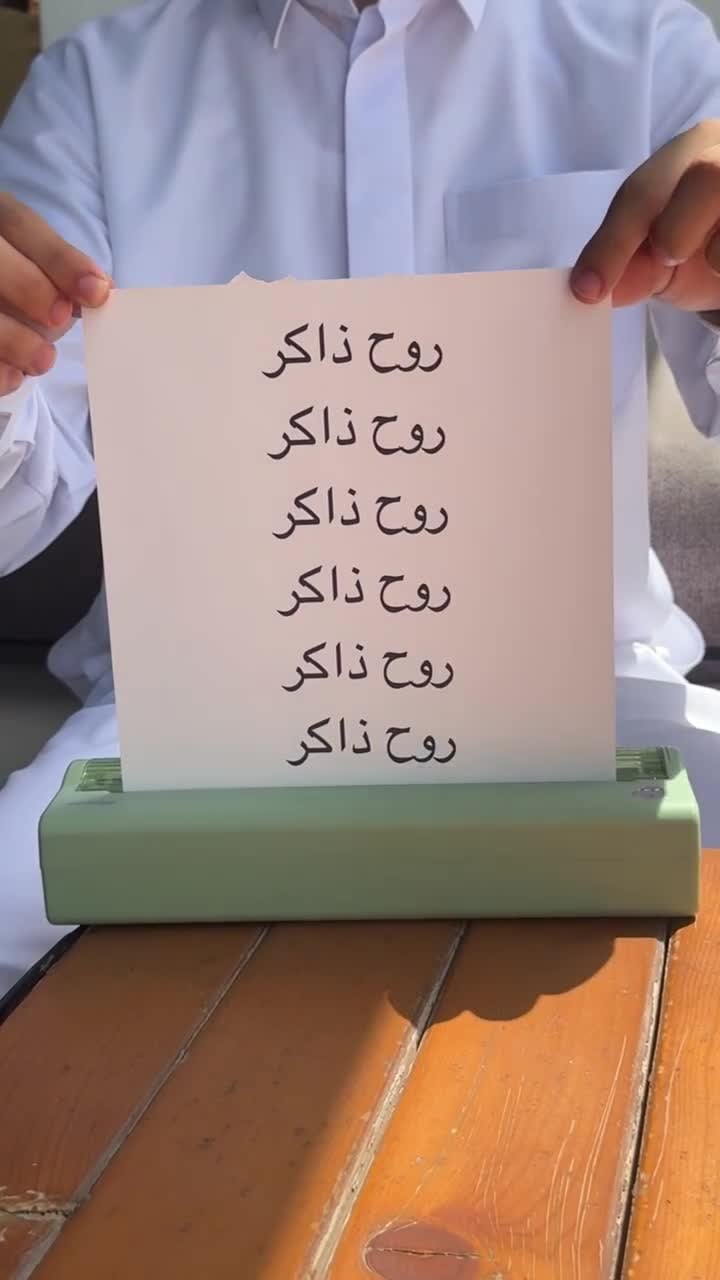 روح ذاكر
روح ذاكر
روح ذاكر
روح ذاكر
روح ذاكر
روح ذاكر